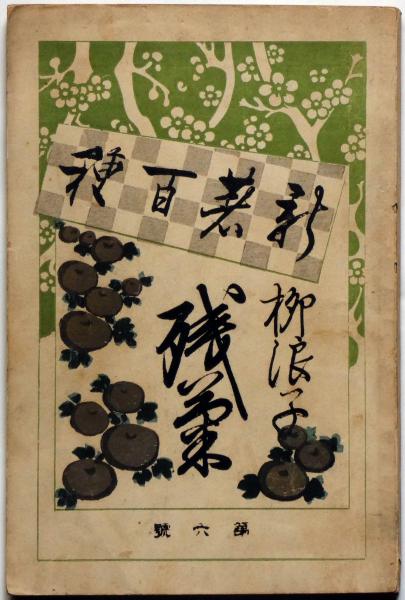 新著百種
柳浪子
残菊
第六號